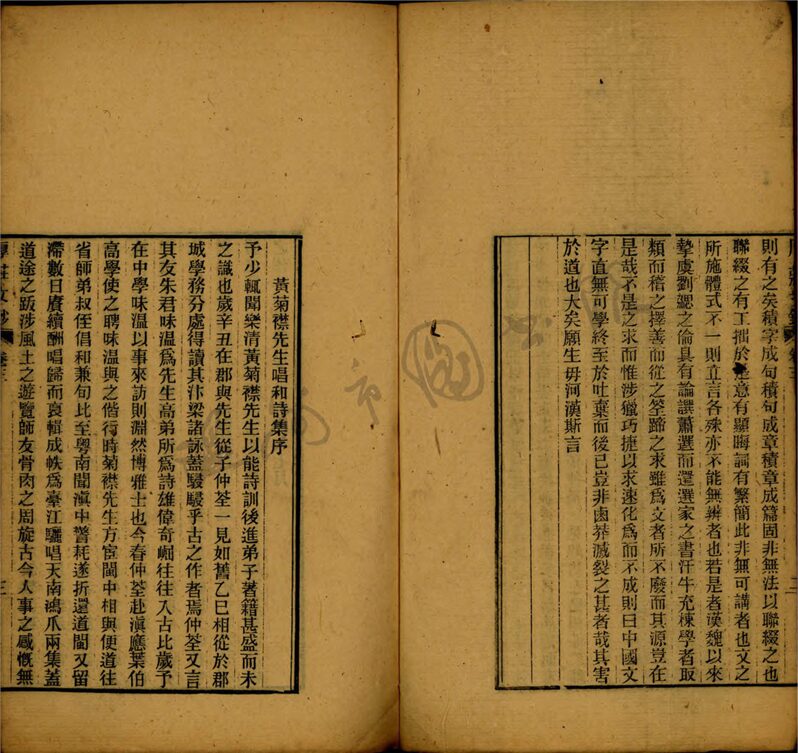 則有之矣積字成句積句成章積章成篇固非無法以聯綴之也
聯綴之有工拙於意有顯晦詞有繁簡此非無可講者也文之
所施體式不一則立言各殊亦不能無辨者也若是者漢魏以來
摯虞劉勰之倫具有論譔蕭選而還選家之書汗牛充棟學者取
類而稽之擇善而從之筌蹄之求雖爲文者所不廢而其源豈在
是哉不是之求而惟涉獵巧捷以求速化爲而不成則曰中國文
字直無可學終至於吐棄而後已豈非鹵莽滅裂之甚者哉其害
於道也大矣願生毋河漢斯言
黃菊襟先生唱和詩集序
予少輒聞樂清黃菊襟先生以能詩訓後進弟子著籍甚盛而未
之識也歲辛丑在郡與先生從子仲荃一見如舊乙巳相從於郡
城學務分處得讀其汴梁諸詠蓋駸駸乎古之作者焉仲荃又言
其友朱君味溫爲先生高弟所爲詩雄偉奇崛往往入古比歲予
在中學味溫以事來訪則淵然博雅士也今春仲荃赴滇應葉伯
高學使之聘味溫與之偕行時菊襟先生方宦閩中相與便道往
省師弟叔侄倡和兼旬比至粵南聞滇中警耗遂折還道閩又留
滯數日賡續酬唱歸而裒輯成帙爲臺江驪唱天南鴻爪兩集蓋
道途之跋涉風土之遊覽師友骨肉之周旋古今人事之感慨無
莊文鈔
卷三
三
市圖